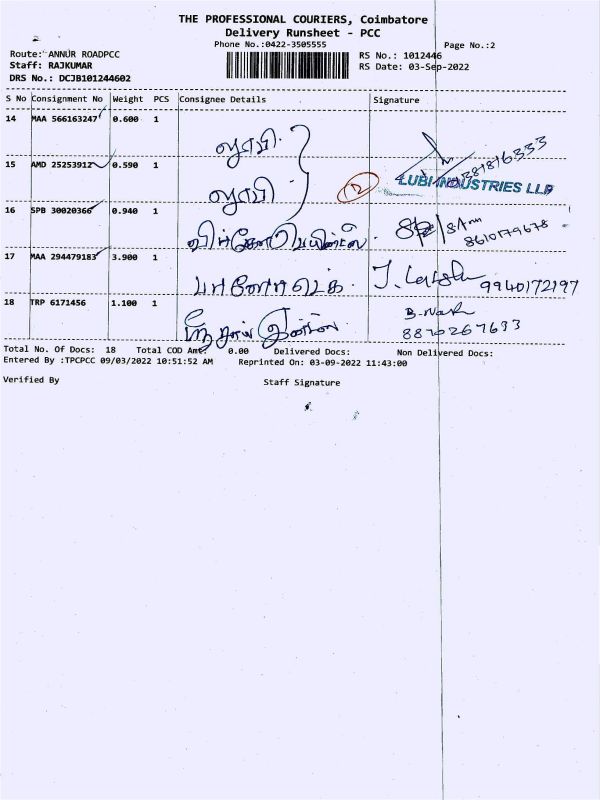 THE PROFESSIONAL COURIERS, Coimbatore
Delivery Runsheet - PCC
Phone No.:0422-3505555
Page No.:2
Route: ANNUR ROADPCC
RS No.: 1012446
Staff: RAJKUMAR
RS Date: 03-Sep-2022
DRS No.: DCJB101244602
S No Consignment No Weight PCS Consignee Details Signature
14 MAA 566163247 0.600 1 லூபி
15 AMD 25253912 0.590 1 லூபி 2 LUBI INDUSTRIES LLP
16 SPB 30020366 0.940 1 8610179678
17 MAA 294479183 3.900 1 9940172197
18 TRP 6171456 1.100 1
8870267693
Total No. Of Docs: 18 Total COD Amt: 0.00 Delivered Docs: Non Delivered Docs:
Entered By :TPCPCC 09/03/2022 10:51:52 AM Reprinted On: 03-09-2022 11:43:00
Verified By Staff Signature